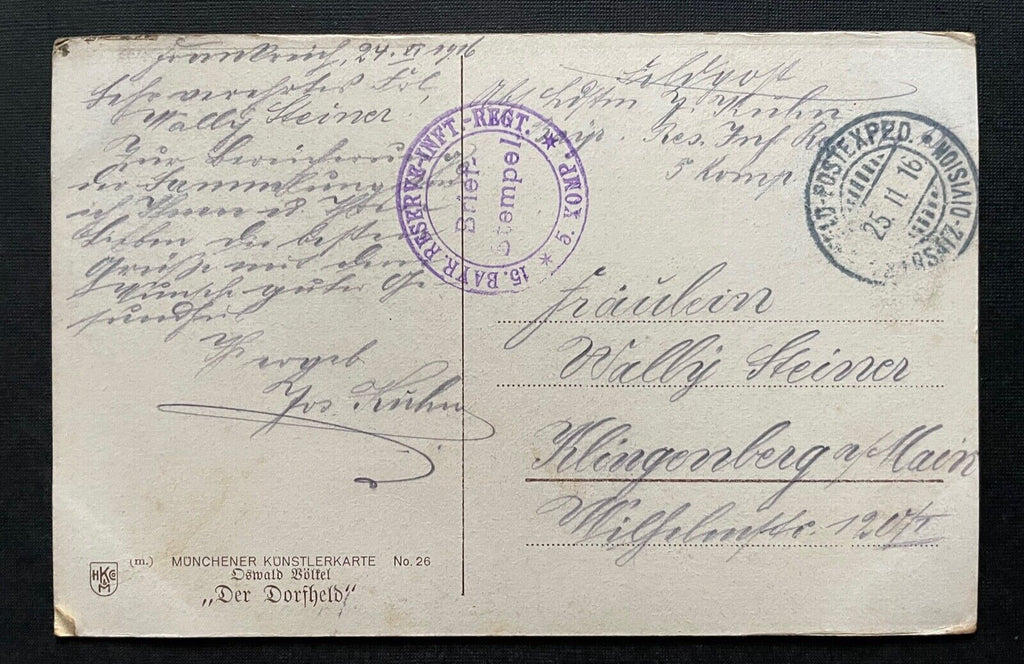 Frankreich, 24. II 1916
Sehr verehrtes Frl.
Wally Steiner
Zur Bereicherung
der Sammlung
ich Ihnen
lieben die besten
Grüße mit dem
Wunsche guter Ge
sundheit
Ihr ergeb
Jos Kuhn
Feldpost
Abs Ldstm J. Kuhn
Res. Inf R
5 Komp
15. BAYR. RESERVE-INFT.-REGT. * 5. KOMP. *
Brief-
Stempel
POSTEXPED. * MOISLAID-
25 II 16
Fräulein
Wally Steiner
Klingenberg a/Main
Wilhelmstr. 120/I
(m.) MÜNCHENER KÜNSTLERKARTE No. 26
Oswald Völkel
„Der Dorfheld“
HKCo
M